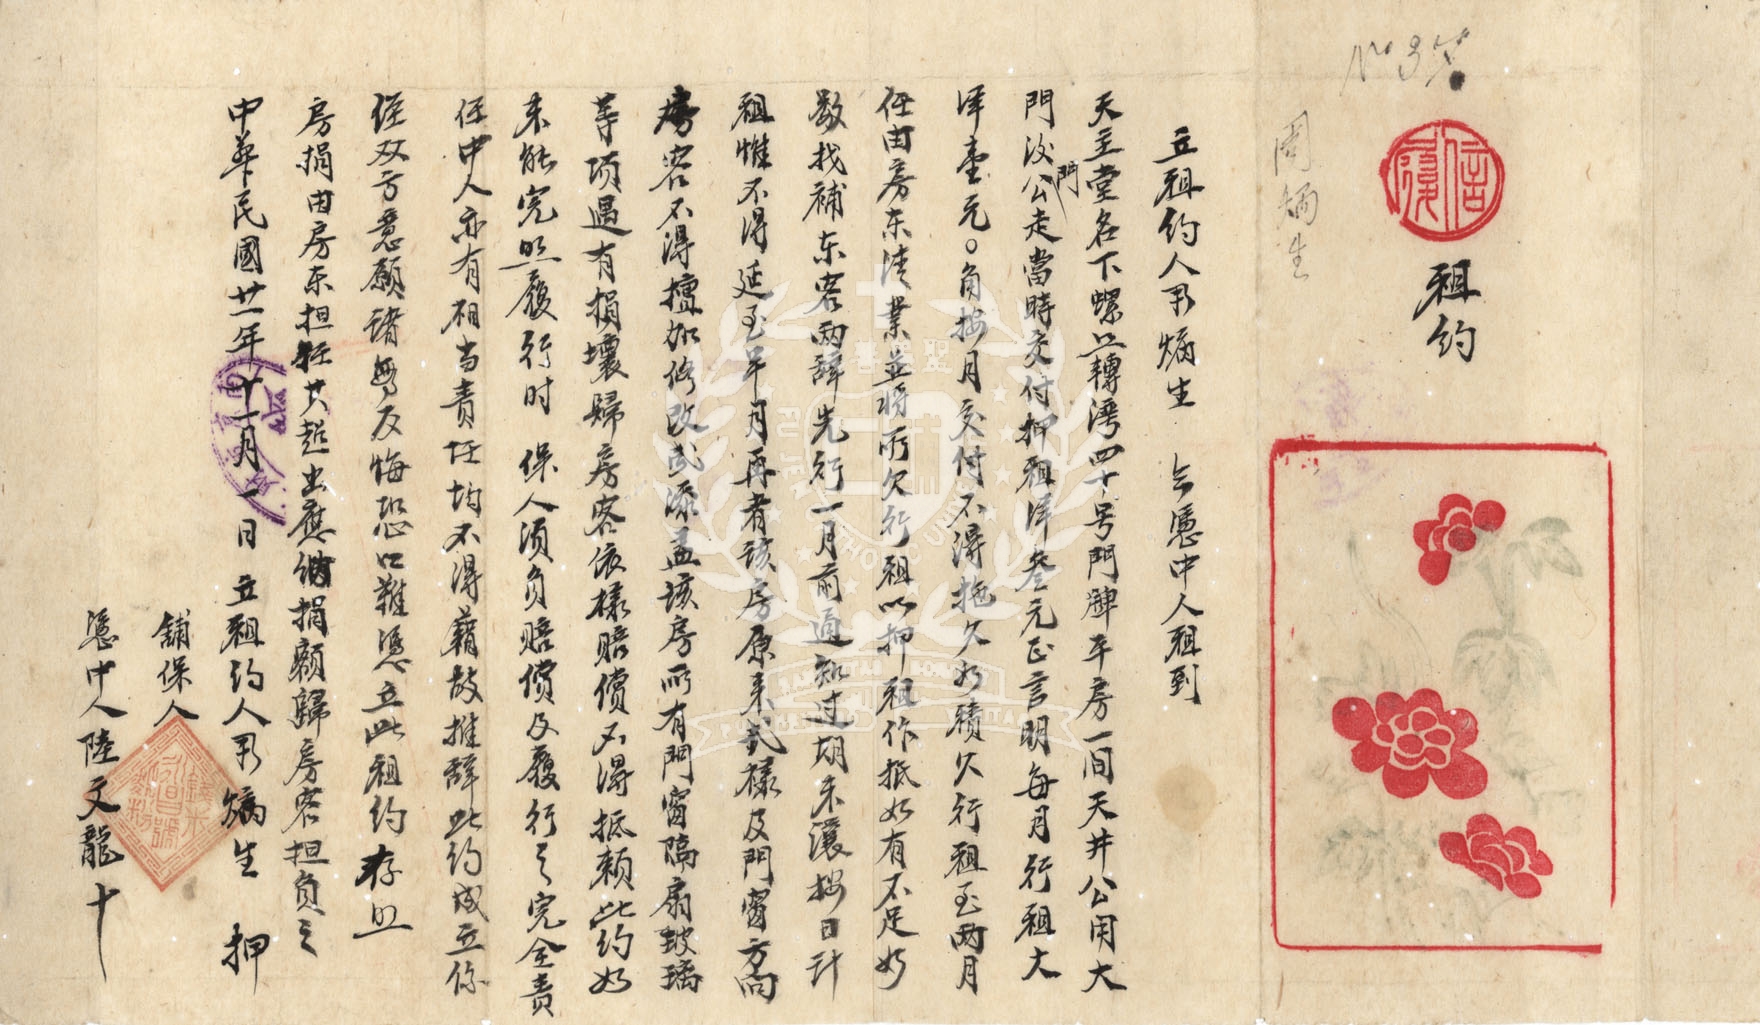 信
租約
立租約人 炳生 今憑中人租到
天主堂名下螺丝轉灣四十号門牌平房一间天井公用大
門没公門走當時交付押租洋叁元正言明每月行租大
洋壹元〇角按月交付不得拖欠如積欠行租至两月
任由房东清業並將所欠行租以押租作抵如有不足如
数找補东客两辞先行一月前通知过期未滿按日計
租惟不得延至半月再者该房原来式樣及門窗方向
房客不得擅加修改或添盖该房所有門窗隔扇玻璃
等项遇有損壞歸房客依樣賠償不得抵賴此约如
未能完照履行时 保人须負賠償及履行之完全責
任中人亦有相当責任均不得藉故推辞此约成立係
經双方意願诸無反悔恐口难憑立此租约存照
房捐由房东担任其超出應納捐額歸房客担負之
中華民國廿一年十一月一日 立租约人 炳生 押
鋪保人
憑中人陸文龍十
周炳生